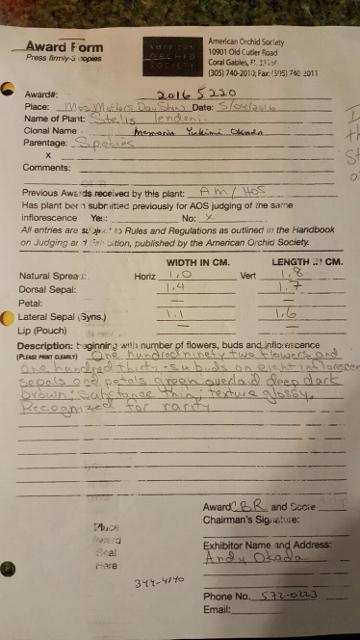 Award Form
Press firmly-3 copies
AMERICAN
ORCHID
SOCIETY
American Orchid Society
10901 Old Cutler Road
Coral Gables, FL
(305) 740-2010; Fax: (305) 740-2011
Award#: 2016 5220
Place: Date: 5/04/2016
Name of Plant: Stelis lendenii
Clonal Name: Memoria Yukimi Okada
Parentage: Species
x
Comments:
Previous Awards received by this plant: AM/HOS
Has plant been submitted previously for AOS judging of the same
inflorescence Yes: No: x
All entries are subject to Rules and Regulations as outlined in the Handbook
on Judging and Exhibition, published by the American Orchid Society.
WIDTH IN CM. LENGTH IN CM.
Natural Spread: Horiz 1.0 Vert 1.8
Dorsal Sepal: 1.4 1.7
Petal: — —
Lateral Sepal (Syns.) 1.1 1.6
Lip (Pouch) — —
Description: beginning with number of flowers, buds and inflorescence
(PLEASE PRINT CLEARLY) One hundred ninety two flowers and
one hundred thirty-six buds on eight inflorescen
sepals and petals green overlaid deep dark
brown; substance thin; texture glossy.
Recognized for rarity
Award CBR and Score
Chairman's Signature:
Place
Award
Seal
Here
Exhibitor Name and Address:
Andy Okada
344-4140
Phone No. 572-0223
Email: